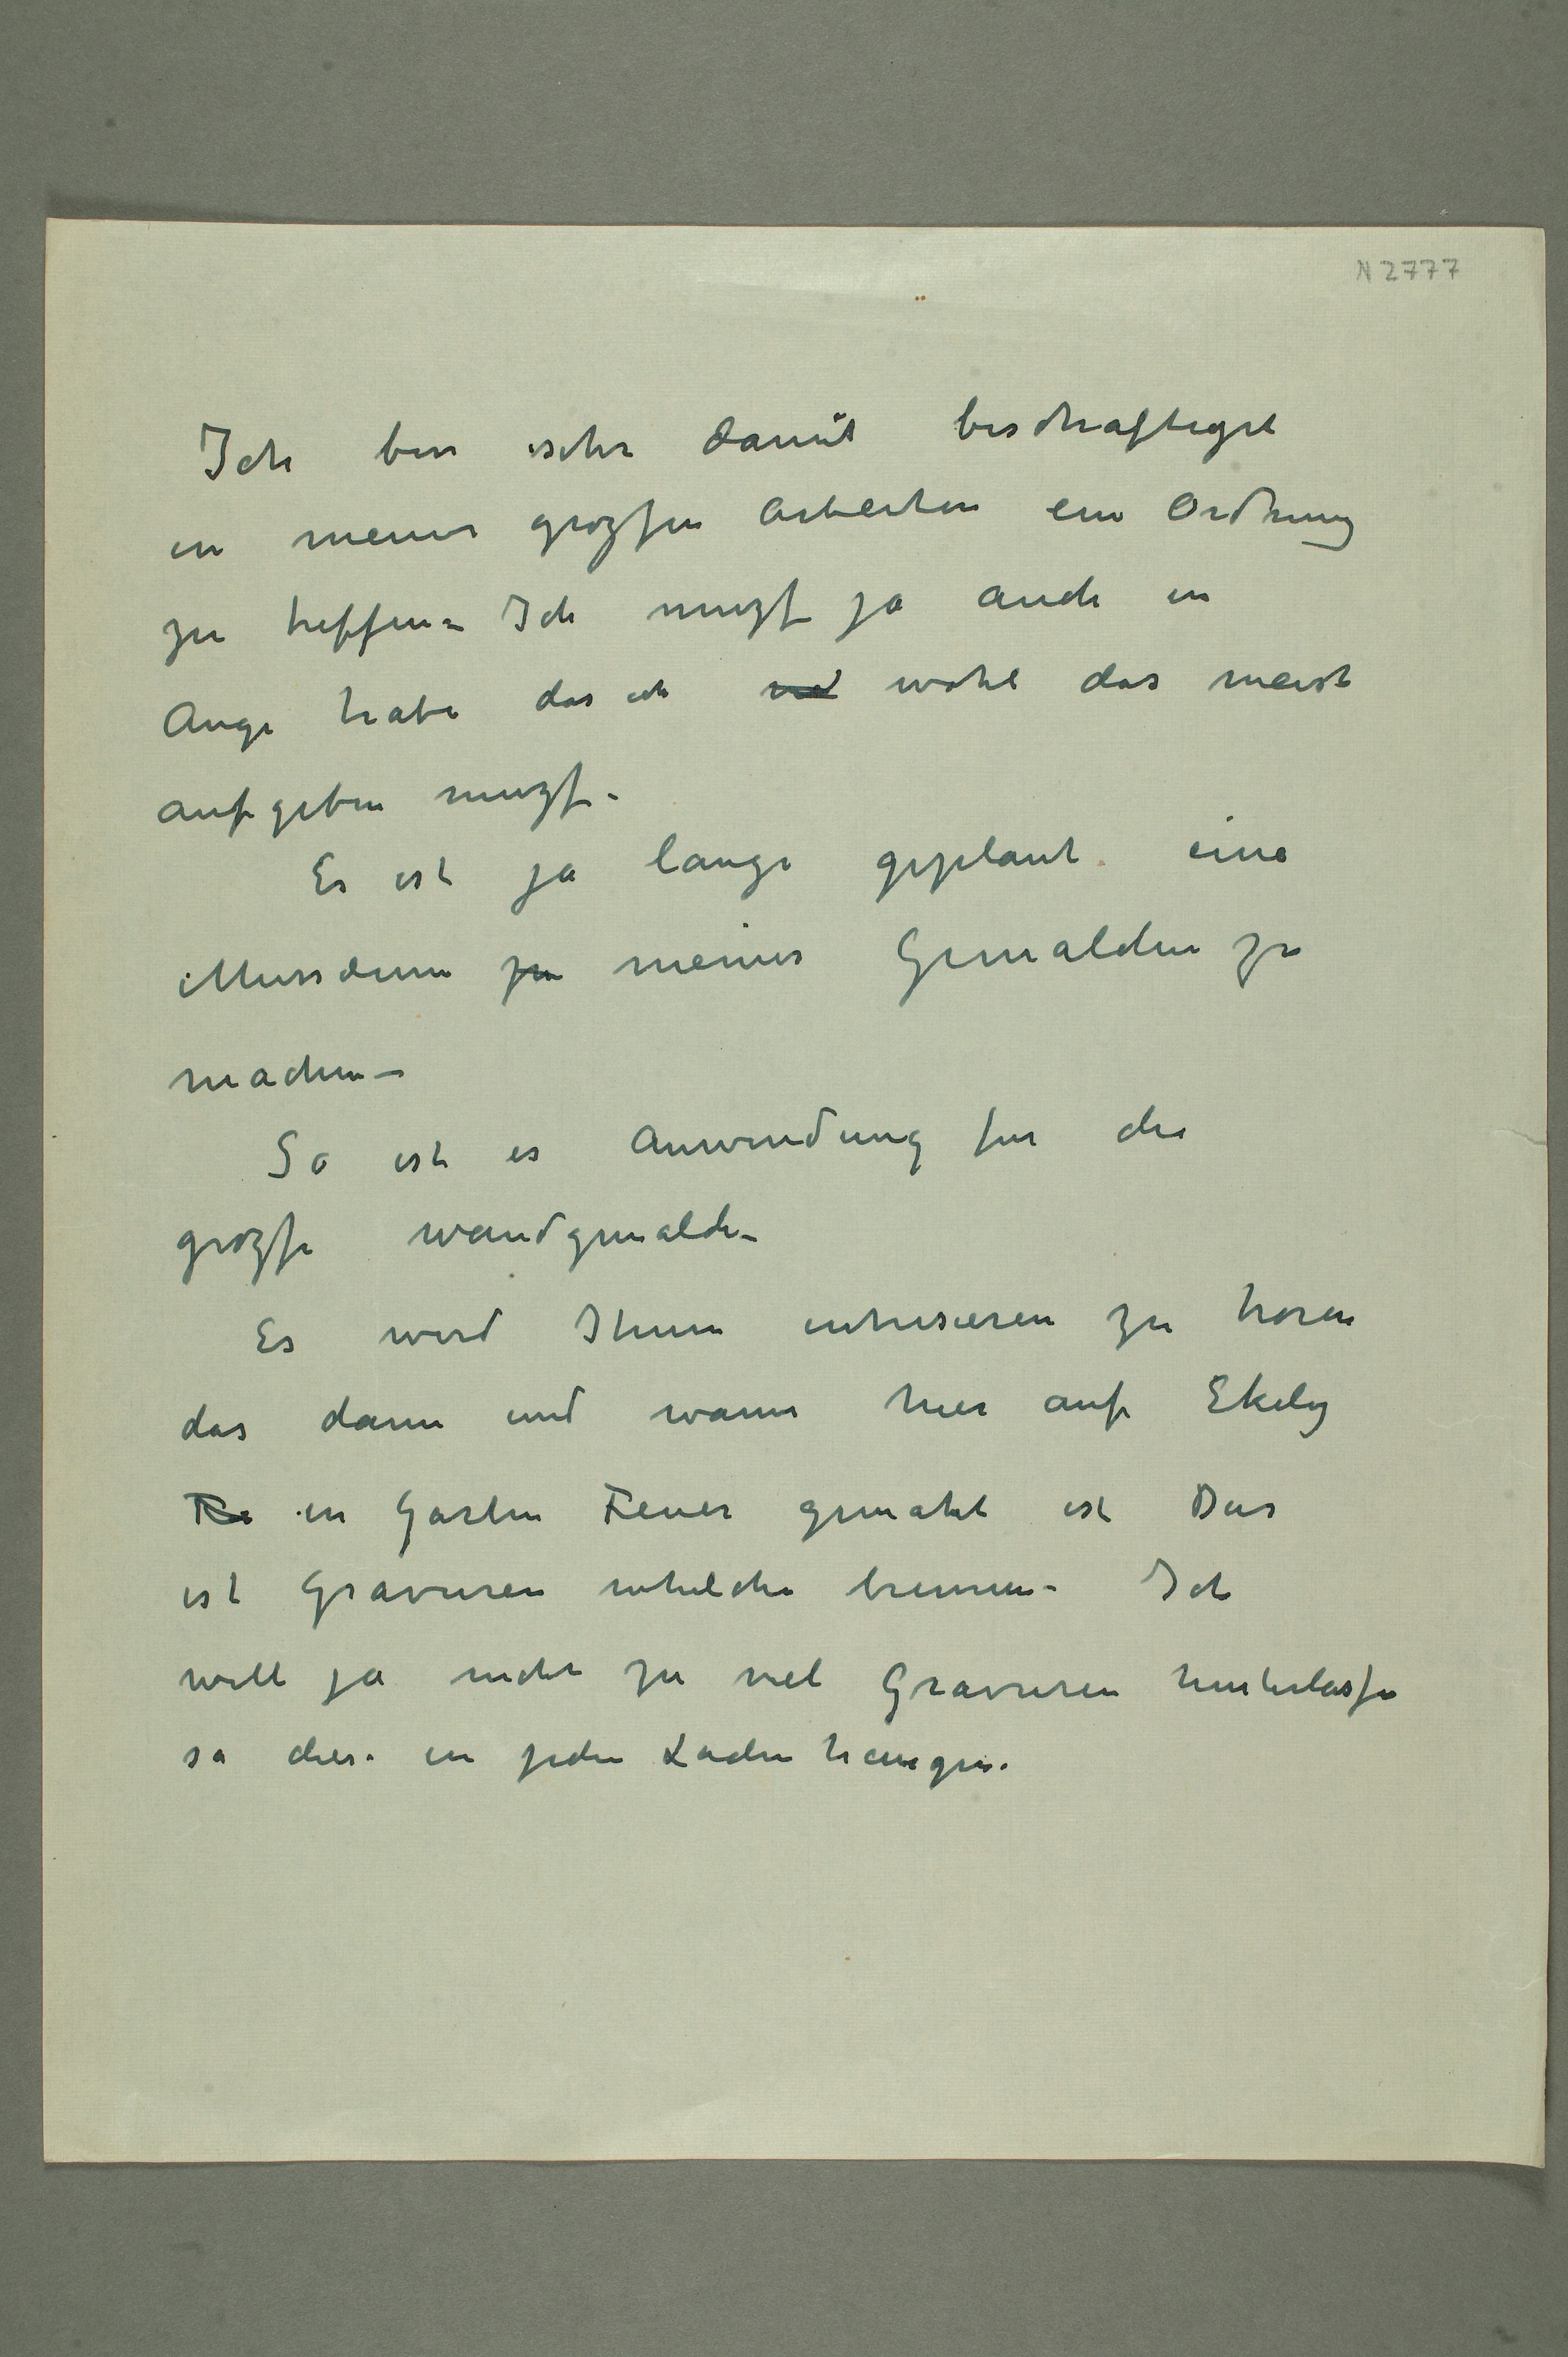 N 2777
Ich bin sehr damit beschaftiget
in meiner grozfen Arbeiten ein Ordnung
zu treffen – Ich muzf ja auch in
Auge habe das ich wohl das meist
aufgeben muzf –
Es ist ja lange geplant eine
Mussæum zu meiner Gemalden zu
machen –
So ist es Anwendung fur die
grozfe wandgemalde –
Es wird Ihnen intresieren zu horen
das dann und wann hier auf Ekely
in Garten Feuer gemaht ist Das
ist Gravuren whelche brennen – Ich
will ja nicht zu viel Gravuren hinterlasfe
sa diese in jeden Laden hængen.